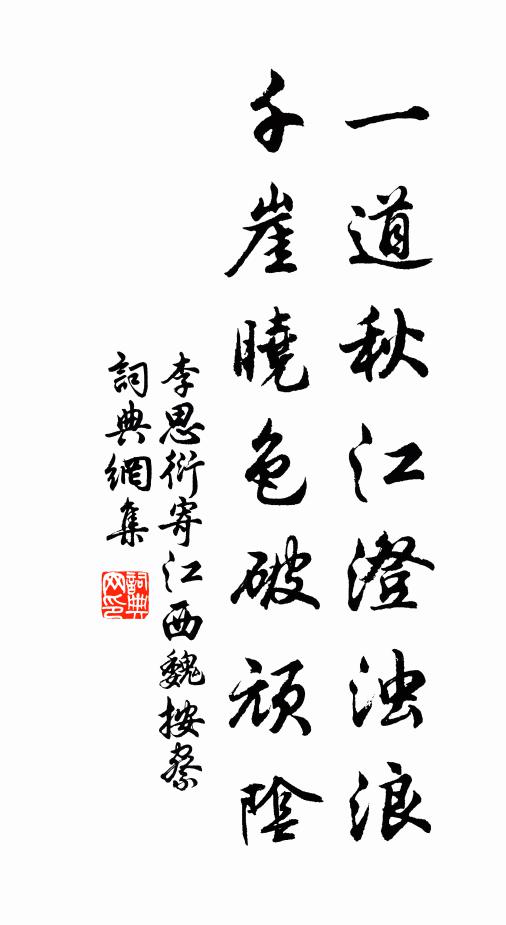 一道秋江澄浊浪
千崖曉色破頑陰
李思衍寄江西魏按察
詞典網集
詞典网印